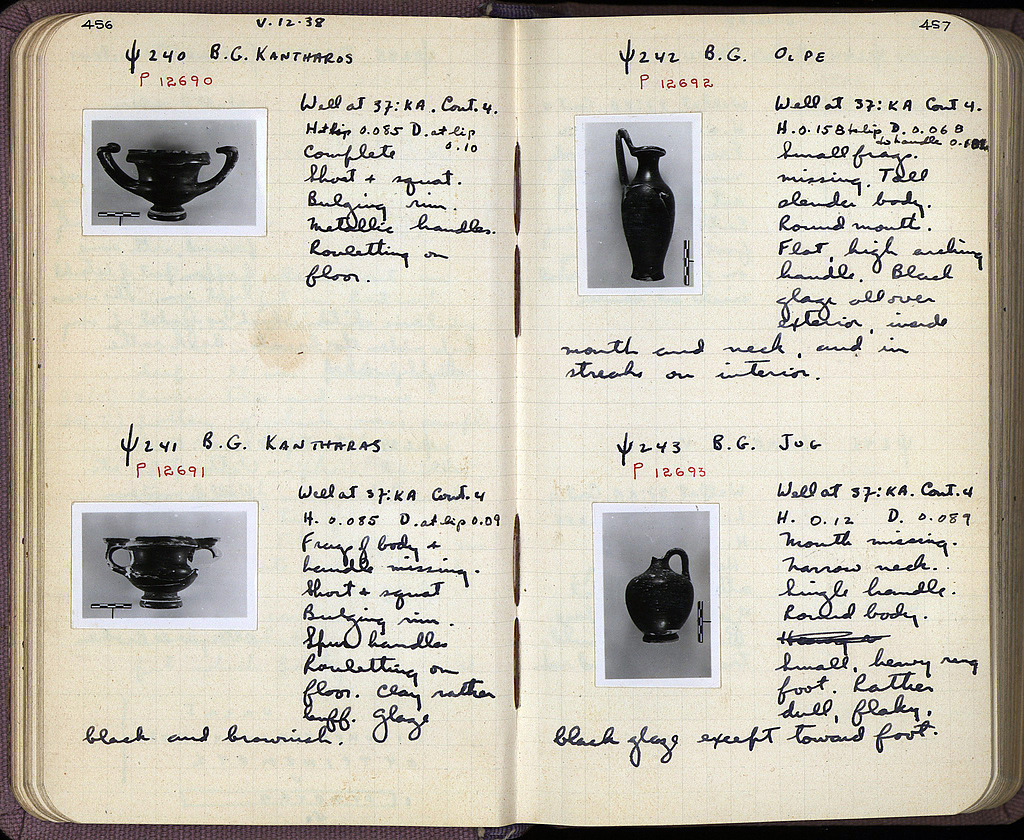 456
V.12.38
Ψ240 B.G. KANTHAROS
P 12690
Well at 37:KA. Cont. 4.
H. to lip 0.085 D. at lip
0.10
Complete
Short + squat.
Bulging rim.
Metallic handles.
Rouletting on
floor.
Ψ241 B.G. KANTHARAS
P 12691
Well at 37:KA Cont. 4
H. 0.085 D. at lip 0.09
Frag of body +
handle missing.
Short + squat
Bulging rim.
Spur handles
Rouletting on
floor. Clay rather
buff. Glaze
black and brownish.
457
Ψ242 B.G. OLPE
P 12692
Well at 37:KA Cont 4.
H. 0.158 to lip D. 0.068
to handle
Small frags.
missing. Tall
slender body.
Round mouth.
Flat, high arching
handle. Black
glaze all over
exterior, inside
mouth and neck, and in
streaks on interior.
Ψ243 B.G. JUG
P 12693
Well at 37:KA. Cont. 4
H. 0.12 D. 0.089
Mouth missing.
Narrow neck.
Single handle.
Round body.
Small, heavy ring
foot. Rather
dull, flaky,
black glaze except toward foot.